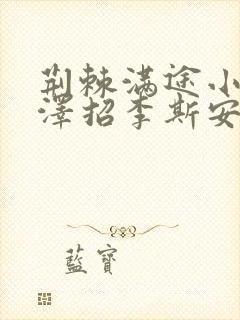 荆棘满途小
泽招李斯安
蓝寳